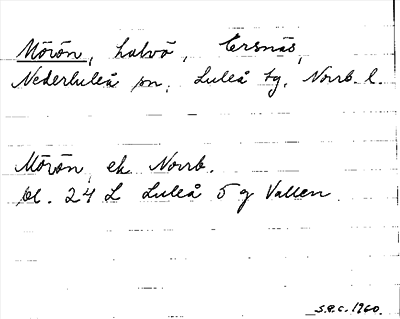 Mörön, halvö, Ersnäs,
Nederluleå sn. Luleå tg. Norrb. l.
Mörön, ek Norrb.
bl. 24 L Luleå 5 g Vallen
s.e.c. 1960.